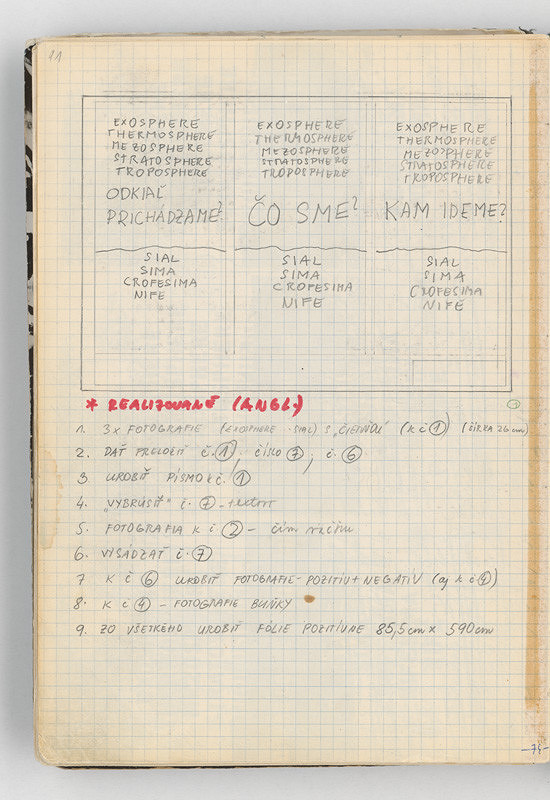 11
EXOSPHERE
THERMOSPHERE
MEZOSPHERE
STRATOSPHERE
TROPOSPHERE
ODKIAĽ
PRICHÁDZAME?
SIAL
SIMA
CROFESIMA
NIFE
EXOSPHERE
THERMOSPHERE
MEZOSPHERE
STRATOSPHERE
TROPOSPHERE
ČO SME?
SIAL
SIMA
CROFESIMA
NIFE
EXOSPHERE
THERMOSPHERE
MEZOSPHERE
STRATOSPHERE
TROPOSPHERE
KAM IDEME?
SIAL
SIMA
CROFESIMA
NIFE
* REALIZOVANÉ (ANGL.)
1. 3x FOTOGRAFIE (EXOSPHERE - SIAL) S „ČIERNOU" (k č 1) (ŠÍRKA 26 cm)
2. DAŤ PRELOŽIŤ č. 1, ČÍSLO 7, č. 6
3 UROBIŤ PÍSMO k č. 1
4. „VYBRÚSIŤ" č. 7 - textov
5. FOTOGRAFIA K č 2 - čím
6. VYSÁDZAŤ č. 7
7 K č 6 UROBIŤ FOTOGRAFIE - POZITÍV + NEGATÍV (aj k č 4)
8. K č 4 - FOTOGRAFIE BUNKY
9. ZO VŠETKÉHO UROBIŤ FÓLIE POZITÍVNE 85,5 cm x 590 cm